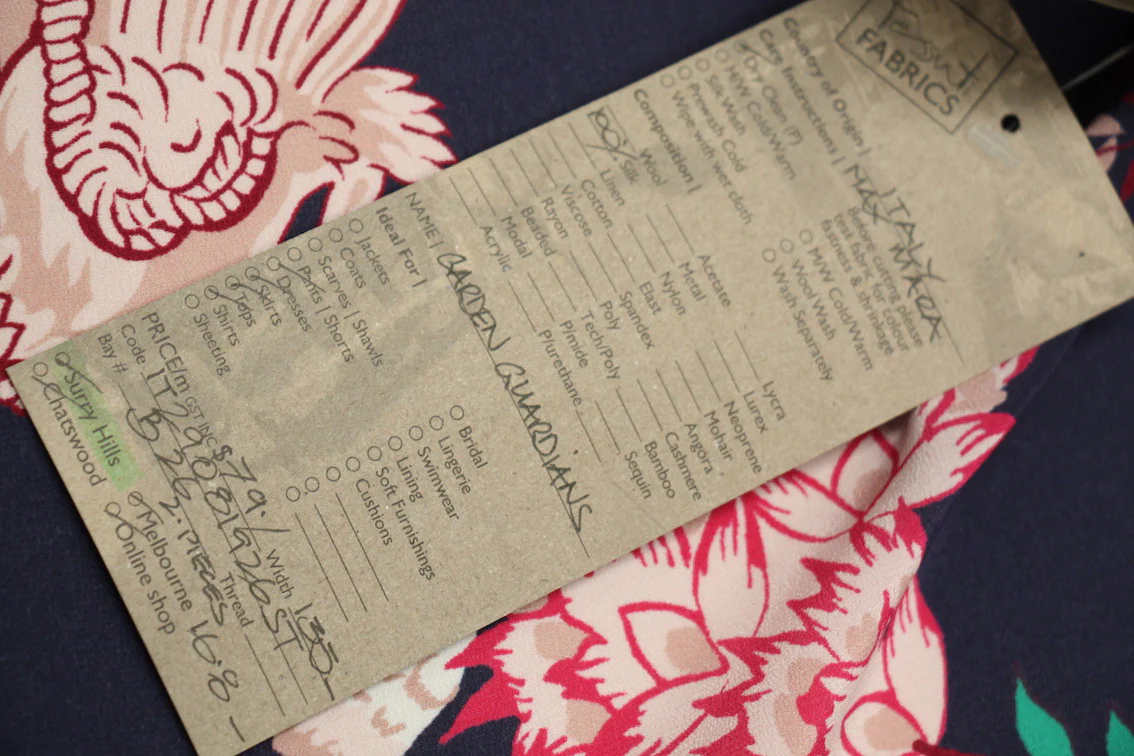 Tessuti
FABRICS
Country of Origin | ITALY
Care Instructions | MaxMara
Dry Clean (P)
H/W Cold/Warm
Silk Wash
Prewash Cold
Wipe with wet cloth
Before cutting please
test fabric for colour
fastness & shrinkage
M/W Cold/Warm
Wool Wash
Wash Separately
Composition |
Wool
100% Silk
Linen
Cotton
Viscose
Rayon
Beaded
Modal
Acrylic
Acetate
Metal
Nylon
Elast
Spandex
Poly
Tech/Poly
P/mide
P/urethane
Lycra
Lurex
Neoprene
Mohair
Angora
Cashmere
Bamboo
Sequin
NAME | GARDEN GUARDIANS
Ideal For |
Jackets
Coats
Scarves | Shawls
Pants | Shorts
Dresses
Skirts
Tops
Shirts
Sheeting
Bridal
Lingerie
Swimwear
Lining
Soft Furnishings
Cushions
PRICE/m GST INC $79./ Width 135
Code
Thread
Bay # B 262. PIECES 16.8
Surry Hills
Chatswood
Melbourne
Online shop